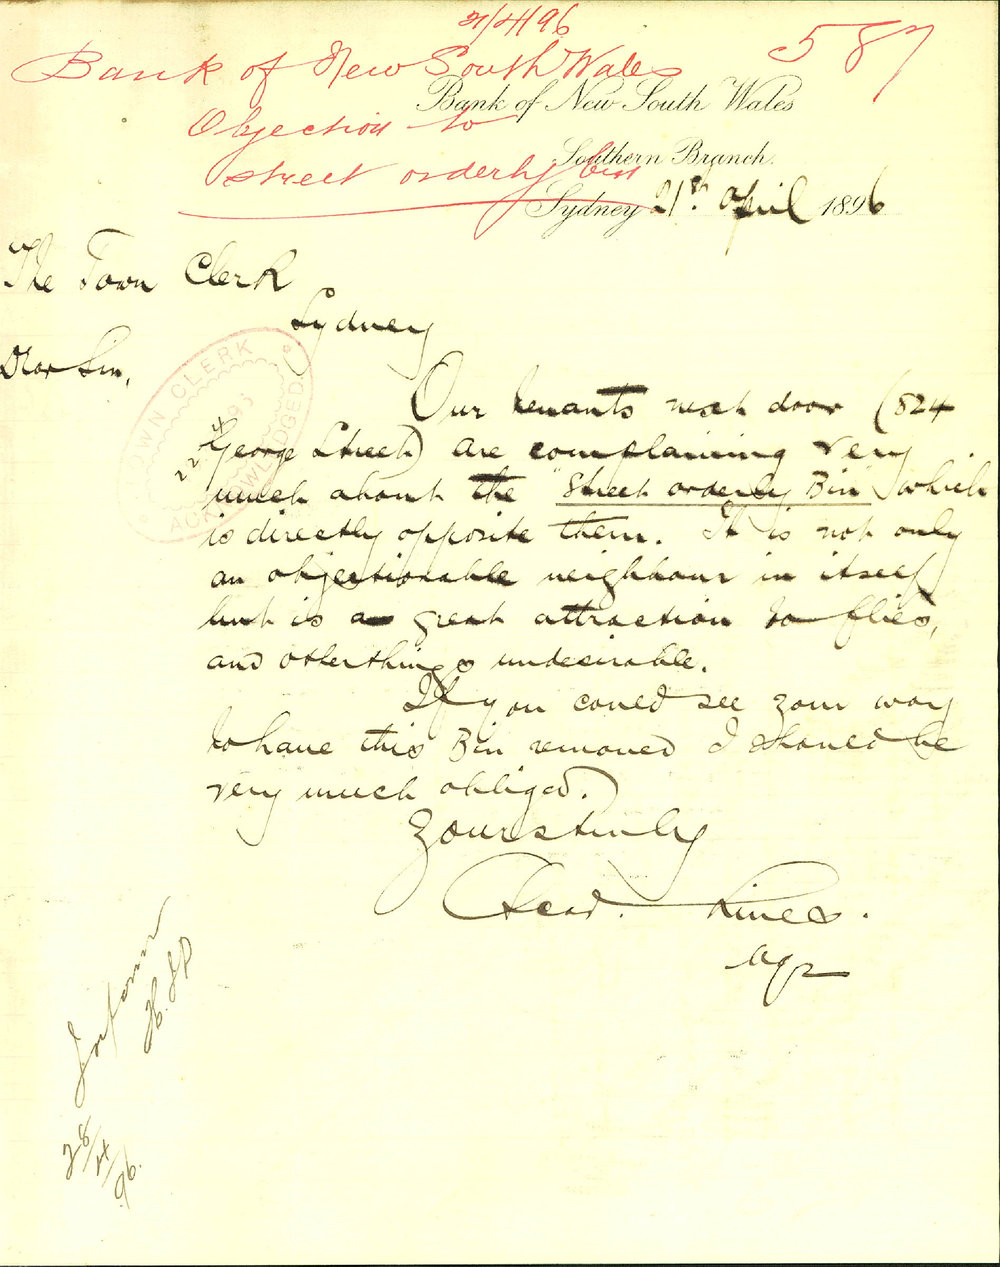 21/4/96
587
Bank of New South Wales
Objection to
street orderly bin
Bank of New South Wales
Southern Branch.
Sydney 21st April 1896
The Town Clerk
Sydney
Dear Sir,
TOWN CLERK
22 4
ACKNOWLEDGED
Our tenants next door (824
George Street) are complaining very
much about the "Street orderly Bin" which
is directly opposite them. It is not only
an objectionable neighbour in itself
but is a great attraction to flies,
and other things undesirable.
If you could see your way
to have this Bin removed I should be
very much obliged.
Yours truly
Mgr
Inform
28/4/96.